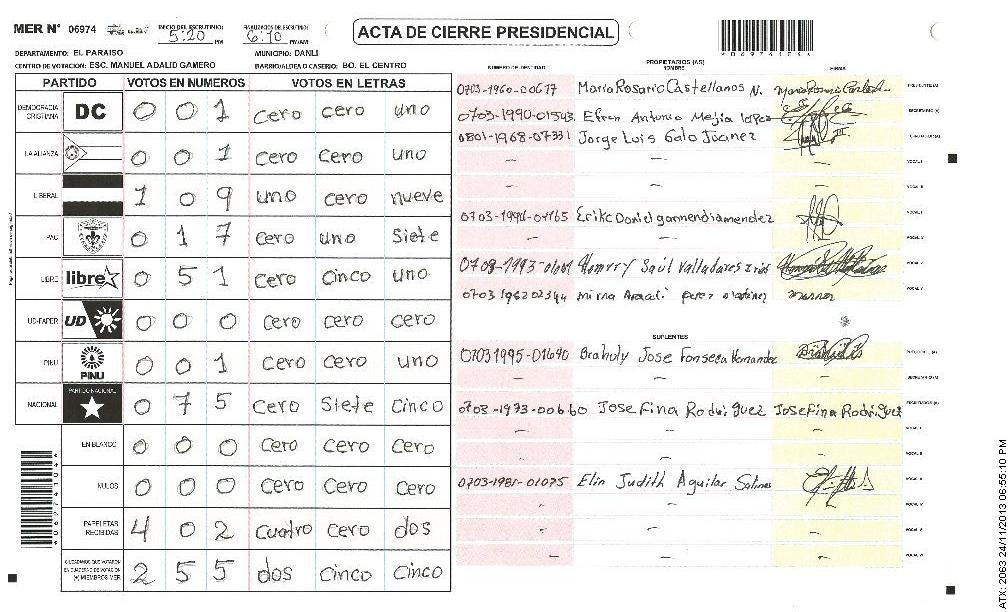 MER Nº 06974
INICIO DEL ESCRUTINIO: 5:20 PM
FINALIZACION DEL ESCRUTINIO: 6:10 PM/AM
ACTA DE CIERRE PRESIDENCIAL
DEPARTAMENTO: EL PARAISO MUNICIPIO: DANLI
CENTRO DE VOTACION: ESC. MANUEL ADALID GAMERO BARRIO/ALDEA O CASERIO: BO. EL CENTRO
PARTIDO VOTOS EN NUMEROS VOTOS EN LETRAS
DEMOCRACIA CRISTIANA DC 0 0 1 cero cero uno
LA ALIANZA 0 0 1 cero cero uno
LIBERAL 1 0 9 uno cero nueve
PAC 0 1 7 cero uno Siete
LIBRE libre 0 5 1 cero Cinco uno
UD-FAPER UD 0 0 0 cero cero cero
PINU PINU 0 0 1 cero cero uno
NACIONAL PARTIDO NACIONAL 0 7 5 cero Siete Cinco
EN BLANCO 0 0 0 cero cero cero
NULOS 0 0 0 cero cero cero
PAPELETAS RECIBIDAS 4 0 2 cuatro cero dos
CIUDADANOS QUE VOTARON EN CUADERNO DE VOTACION (+) MIEMBROS MER 2 5 5 dos Cinco Cinco
PROPIETARIOS (AS)
NUMERO DE IDENTIDAD NOMBRE FIRMA
0703-1960-00617 Maria Rosario Castellanos N. PRESIDENTE(A)
0703-1990-01543 Efren Antonio Mejia lopez SECRETARIO(A)
0801-1968-07331 Jorge Luis Galo ESCRUTADOR(A)
VOCAL I
VOCAL II
Erikc Daniel garmendia mendez VOCAL III
VOCAL IV
Saúl Valladares VOCAL V
Mirna perez
SUPLENTES
07031995-01690 Jose Fonseca Hernandez
SECRETARIO(A)
0703-1973-00660 Josefina Rodriguez Josefina Rodriguez
VOCAL I
VOCAL II
0703-1981-01075 Elin Judith Aguilar VOCAL III
VOCAL IV
VOCAL V
VOCAL VI
ATX: 2063 24/11/2013 06:55:10 PM